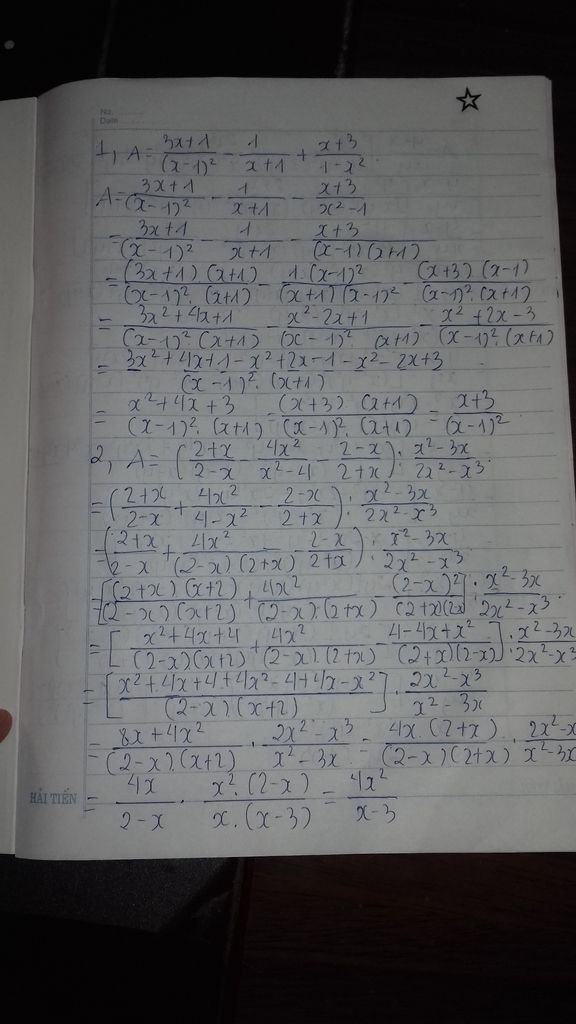 No.
Date
1, A = (3x+1)/((x-1)²) - 1/(x+1) + (x+3)/(1-x²)
A = (3x+1)/((x-1)²) - 1/(x+1) - (x+3)/(x²-1)
= (3x+1)/((x-1)²) - 1/(x+1) - (x+3)/((x-1)(x+1))
= ((3x+1).(x+1))/((x-1)².(x+1)) - (1.(x-1)²)/((x+1)(x-1)²) - ((x+3)(x-1))/((x-1)².(x+1))
= (3x²+4x+1)/((x-1)²(x+1)) - (x²-2x+1)/((x-1)².(x+1)) - (x²+2x-3)/((x-1)².(x+1))
= (3x²+4x+1-x²+2x-1-x²-2x+3)/((x-1)².(x+1))
= (x²+4x+3)/((x-1)².(x+1)) = ((x+3)(x+1))/((x-1)².(x+1)) = (x+3)/((x-1)²)
2, A = ((2+x)/(2-x) - 4x²/(x²-4) - (2-x)/(2+x)) : (x²-3x)/(2x²-x³)
= ((2+x)/(2-x) + 4x²/(4-x²) - (2-x)/(2+x)) : (x²-3x)/(2x²-x³)
= ((2+x)/(2-x) + 4x²/((2-x)(2+x)) - (2-x)/(2+x)) : (x²-3x)/(2x²-x³)
= [((2+x)(x+2))/((2-x)(x+2)) + 4x²/((2-x).(2+x)) - (2-x)²/((2+x)(2-x))] : (x²-3x)/(2x²-x³)
= [(x²+4x+4)/((2-x)(x+2)) + 4x²/((2-x).(2+x)) - (4-4x+x²)/((2+x)(2-x))] : (x²-3x)/(2x²-x³)
= [(x²+4x+4+4x²-4+4x-x²)/((2-x).(x+2))] . (2x²-x³)/(x²-3x)
= (8x+4x²)/((2-x).(x+2)) . (2x²-x³)/(x²-3x) = (4x.(2+x))/((2-x)(2+x)) . (2x²-x)/(x²-3x)
HẢI TIẾN = 4x/(2-x) . (x².(2-x))/(x.(x-3)) = 4x²/(x-3)